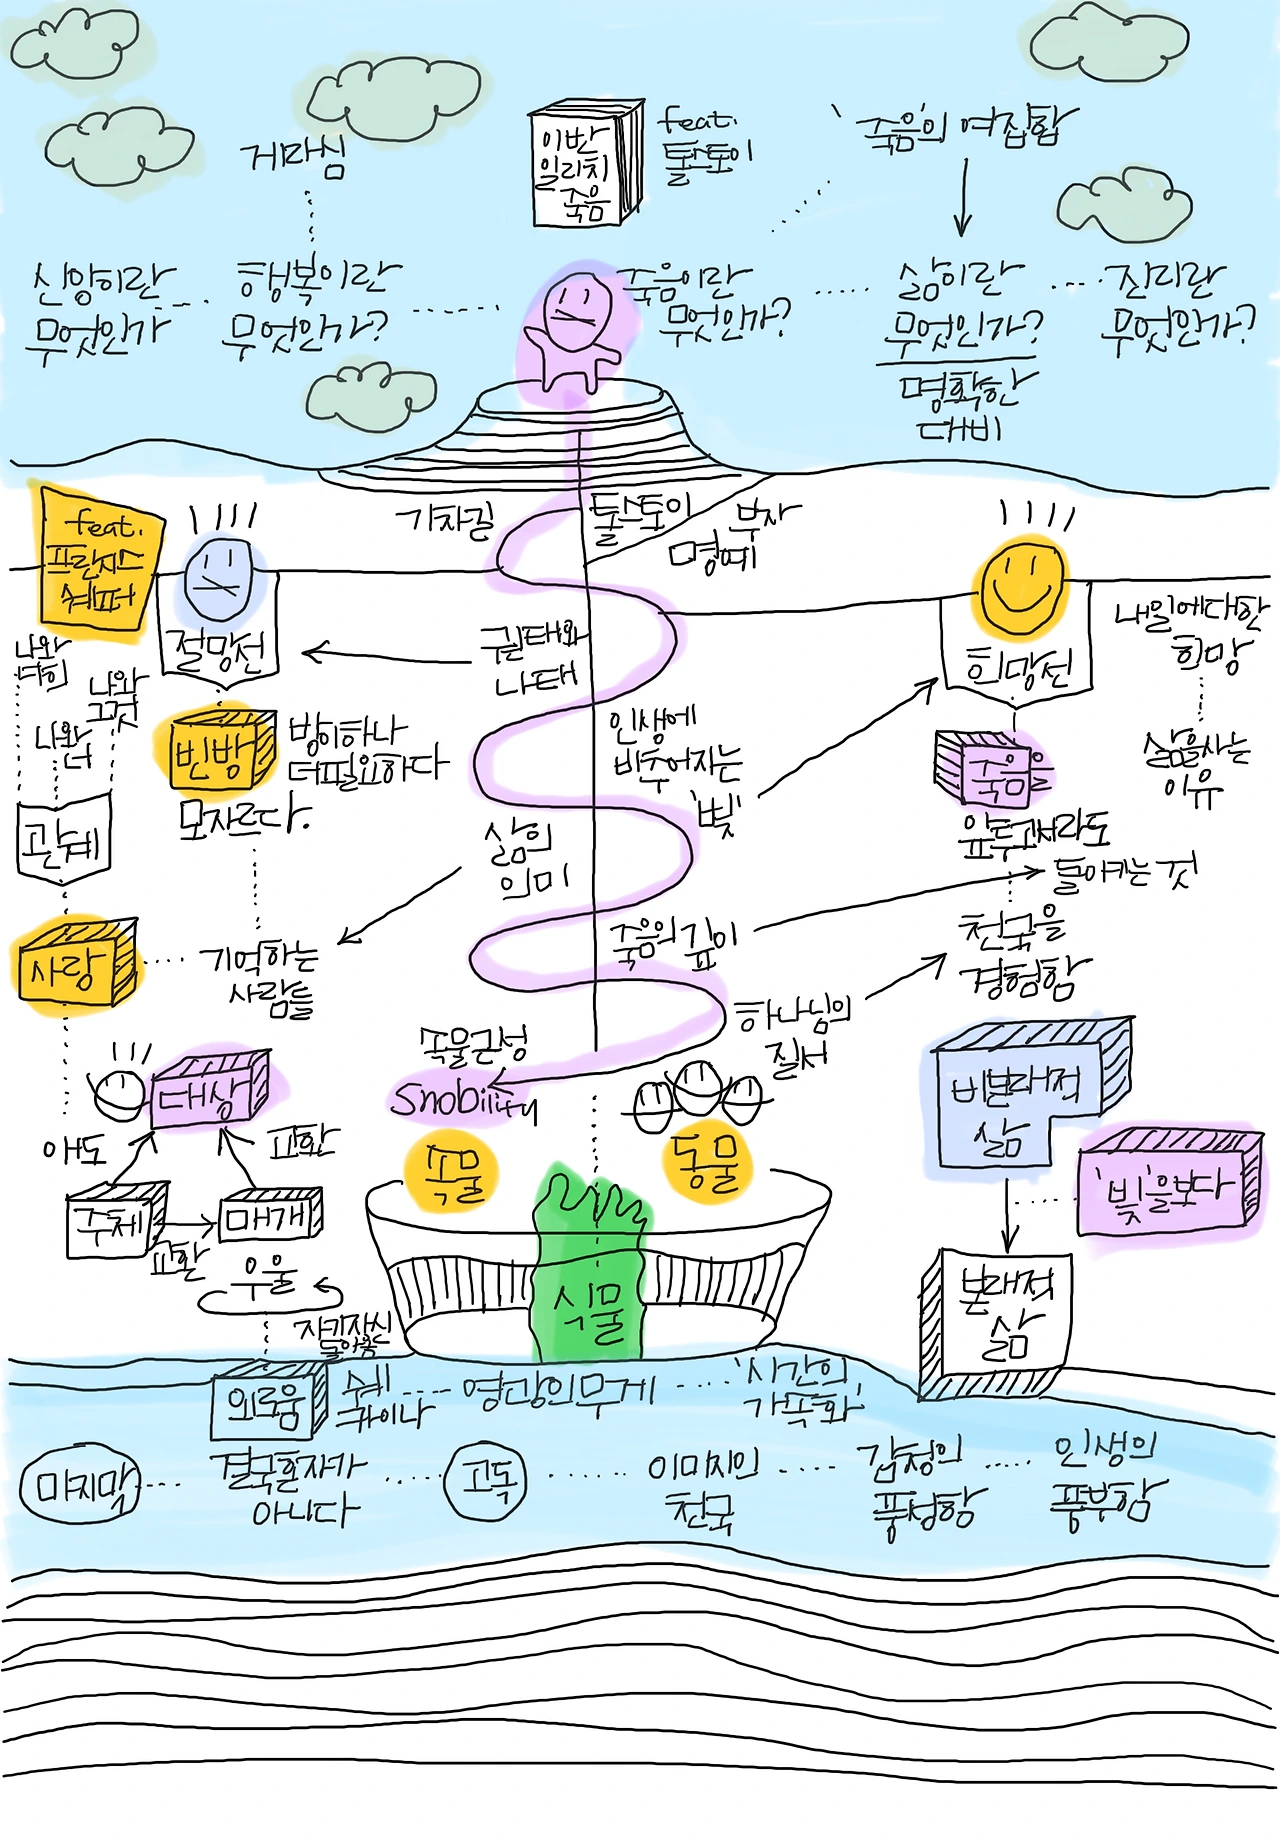 게라심
이반
일리치
죽음
feat.
톨스토이
'죽음'의 여집합
신앙이란
무엇인가
행복이란
무엇인가?
죽음이란
무엇인가?
삶이란
무엇인가?
명확한
대비
진리란
무엇인가?
feat.
프란시스
쉐퍼
기차길
톨스토이
부자
명예
절망선
희망선
내일에대한
희망
나와
너희
나와
너
나와
그것
권태와
나태
빈방
방이하나
더필요하다
모자르다.
인생에
비추어지는
'빛'
죽음을
앞두고서라도
돌이키는 것
삶을사는
이유
관계
삶의
의미
사랑
기억하는
사람들
죽음의 깊이
천국을
경험함
하나님의
질서
속물근성
Snobility
대상
애도
교환
주체
매개
교환
우울
자기자신
돌아옴
속물
동물
식물
비본래적
삶
'빛'을보다
본래적
삶
외로움
쉐키이나
영광의무게
'시간의
가족화'
마지막
결국혼자가
아니다
고독
이미지인
천국
감정의
풍성함
인생의
풍부함